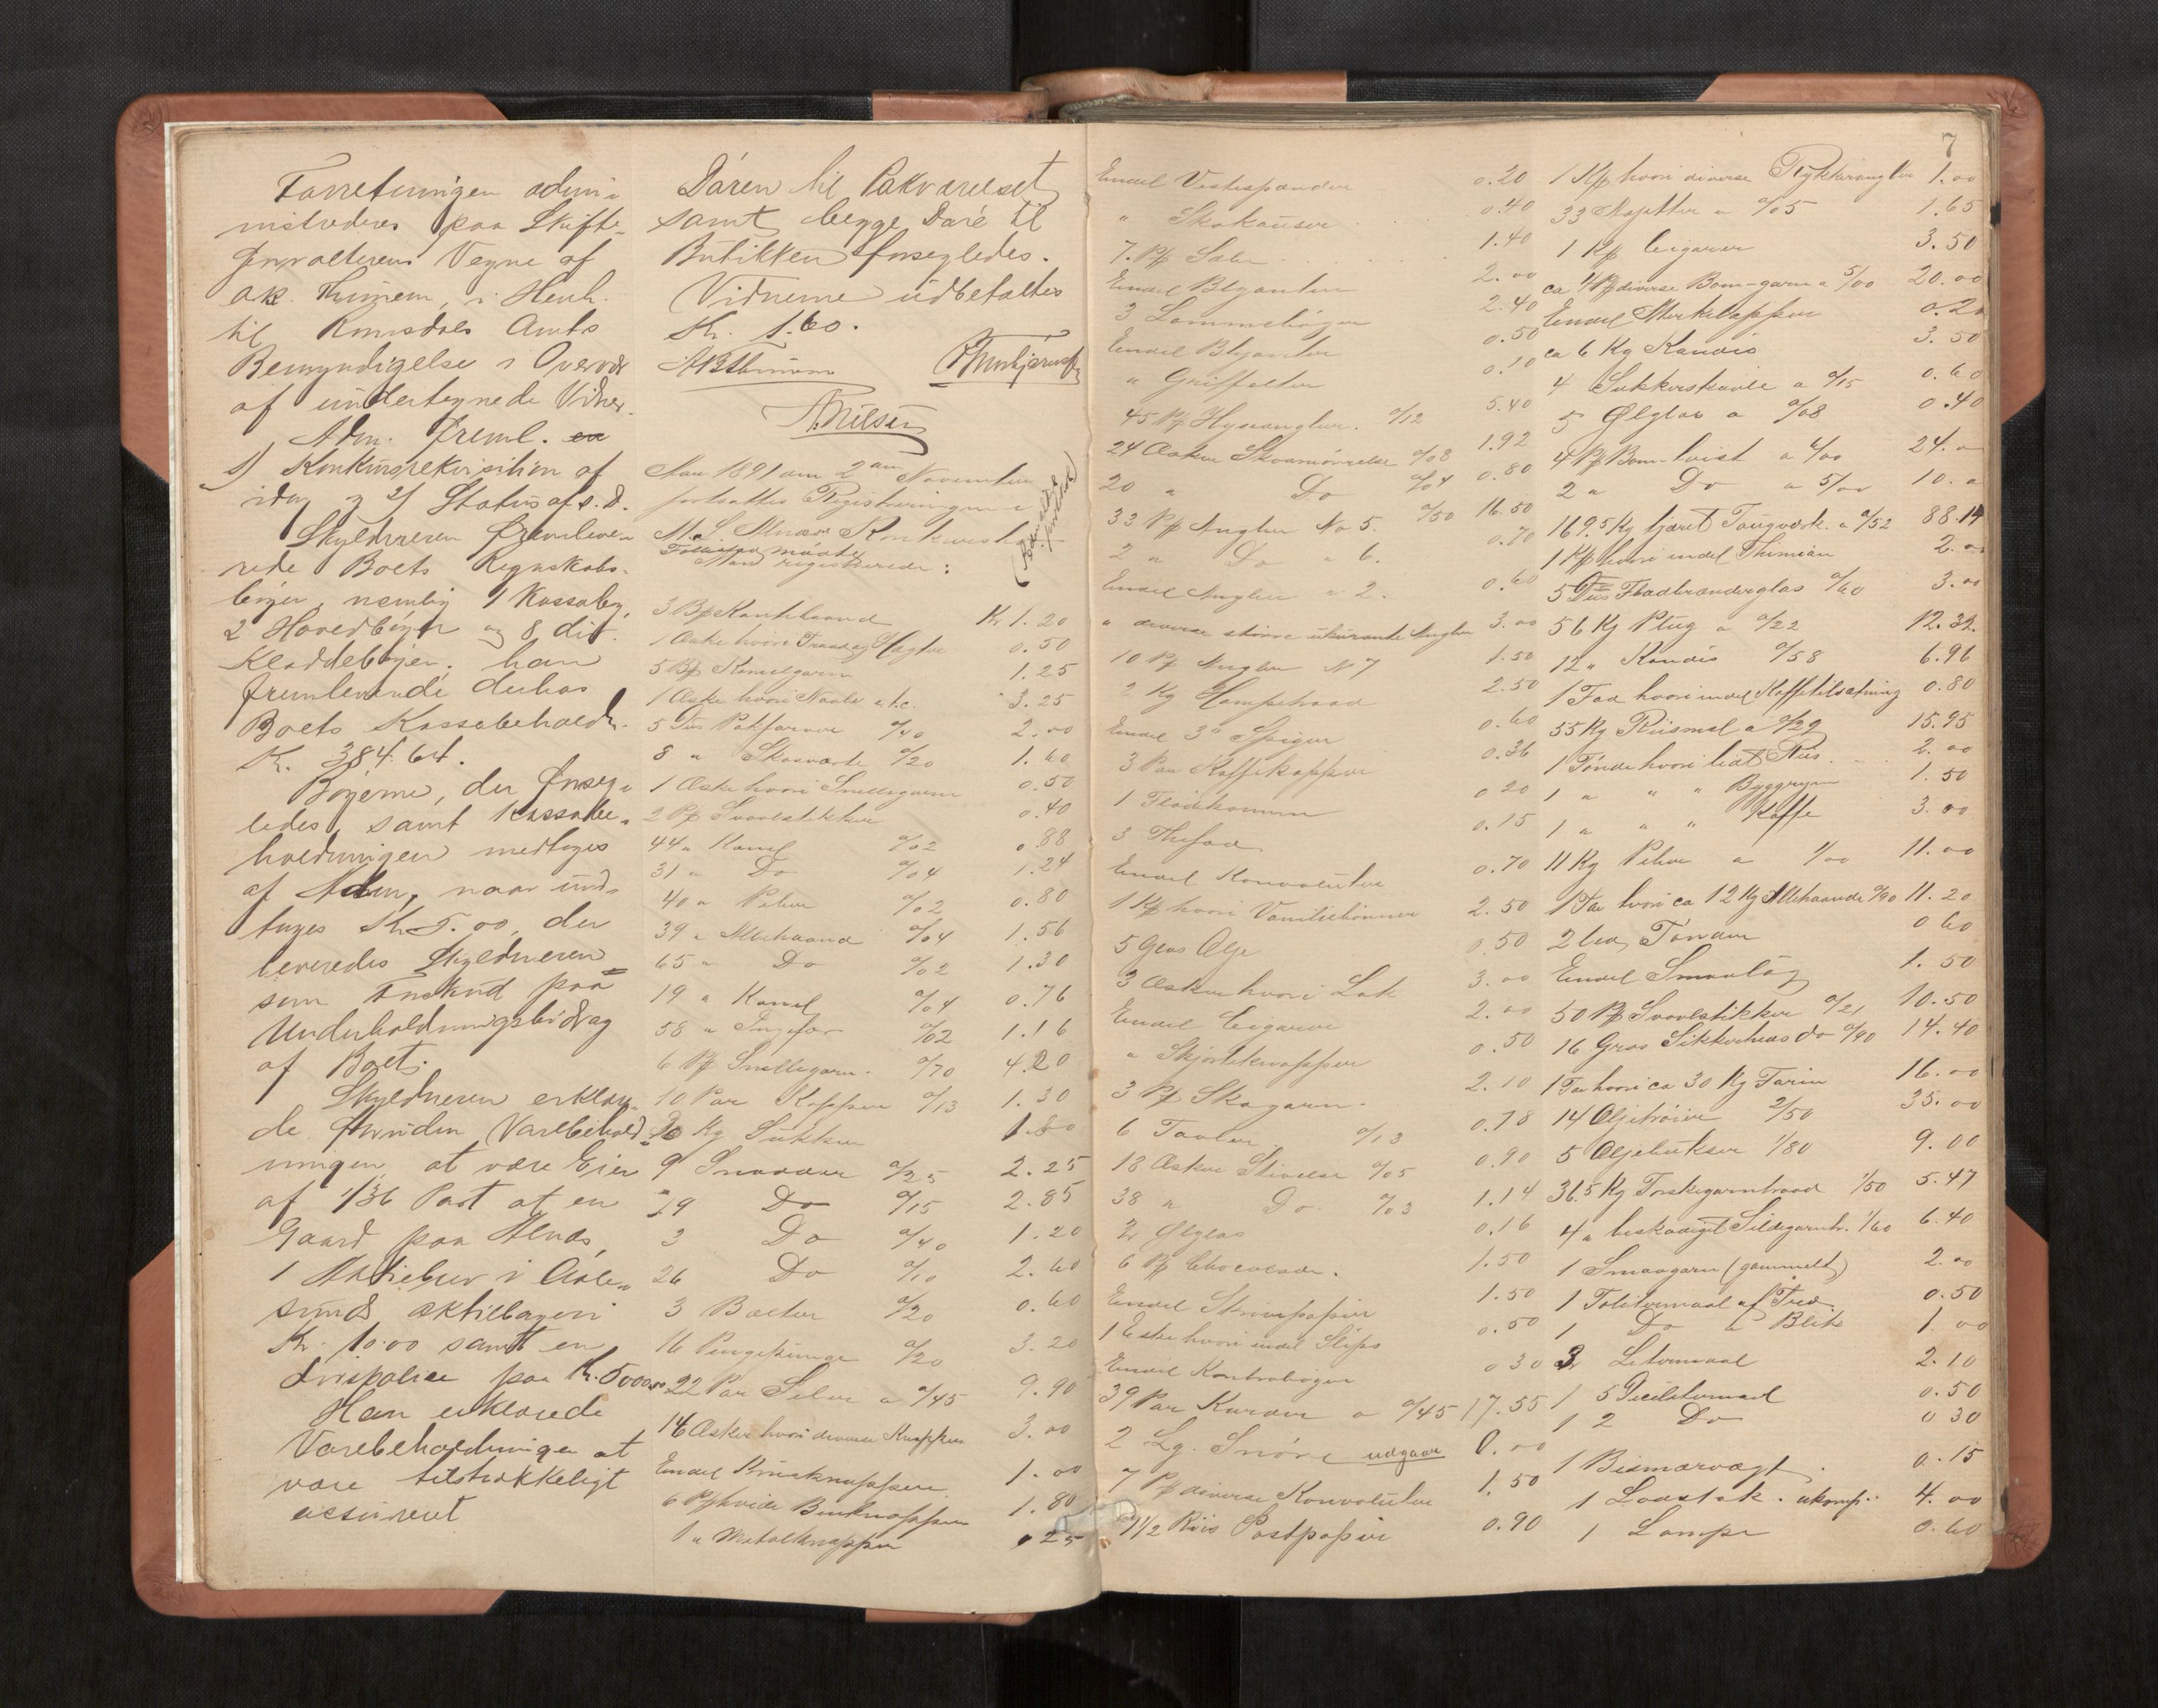 Forretningen admi-
nistreredes paa Skifte-
forvalterens Vegne af
O.R. Thinnem, i Henh.
til Romsdals Amts
Bemyndigelse i Overvær
af undertegnede Vidner.
Adm. freml.
1) Konkursrekvisition af
idag og 2) Status af s. D.
Skyldneren fremleve-
rede Boets Regnskabs-
bøger, nemlig 1 Kassabog,
2 Hovedbøger og 8 dit.
Kladdebøger. han
fremleverede derhos
Boets Kassabeholdn.
Kr. 384.64.
Bøgerne, der forseg-
ledes, samt Kassabe-
holdningen medtoges
af Adm, naar und-
tages Kr 5.00, der
leveredes Skyldneren
som Forskud paa
Underholdningsbidrag
af Boet.
Skyldneren erklær-
de foruden Varebehold-
ningen at være Eier
af 1/36 Part at en
Gaard paa Alnæs,
1 Aktiebrev i Aale-
sunds aktiebryggeri
Kr. 1000 samt en
Livspolice paa Kr. 5000.00
Han erklærede
Varebeholdningen at
være tilstrækkeligt
assureret
Døren til Pakværelset
samt begge Døre til
Butikken forsegledes.
Vidnerne udbetaltes
Kr. 1.60.
A. Nilsen
Aar 1891 den 2den November
fortsattes Registreringen i
M. S. Alnæs Konkursbo
Følgende
Man registrerede:
3 Bp Kantebaand Kr 1.20
1 Æske hvori Traad og Hægter 0.50
5 Bp Kamelgarn 1.25
1 Æske hvori Naale etc. 3.25
5 Dus Pakfarver a/40 2.00
8 " Skosværte a/20 1.60
1 Æske hvori Snellegarn 0.50
2 Pp Svovelstikker 0.40
44 " Kanel a/02 0.88
31 " Do a/04 1.24
40 " Peber a/02 0.80
39 " Allehaande a/04 1.56
65 " Do a/02 1.30
19 " Kanel a/04 0.76
58 " Ingefær a/02 1.16
6 Pp Snellegarn a/70 4.20
10 Par Kopper a/13 1.30
Kg Sukker 1.80
9 Snadder a/25 2.25
19 Do a/15 2.85
3 Do a/40 1.20
26 Do a/10 2.60
3 Bælter a/20 0.60
16 Pengepunge a/20 3.20
22 Par Seler a a/45 9.90
14 Æsker hvori diverse Knapper 3.00
Endel Buxeknapper 1.00
6 Pp hvide Benknapper 1.80
1 " Metalknapper 0.25
7
Endel Vestespænder 0.20
" Skokauser 0.40
7 Pp Saler 1.40
Endel Blyanter 2.00
3 Lommebøger 2.40
Endel Blyanter 0.50
" Griffelter 0.10
45 Pp Hyseangler a/12 5.40
24 Æsker Skosmørrelse a/08 1.92
20 " Do a/04 0.80
33 Pp Angler No 5. a/50 16.50
2 " Do " 6. 0.70
Endel Angler " 2. 0.60
" diverse større ukurante Angler 3.00
10 Pp Angler N 7 1.50
2 Kg Hampetraad 2.50
Endel 3" Spiger 0.60
3 Par Kaffekopper 0.36
1 Flødekanne 0.20
3 Thefad 0.15
Endel Konvolutter 0.70
1 Kp hvori Vanillebønner 2.50
5 Glas Olje 0.50
3 Æsker hvori Lak 3.00
Endel Cigarer 2.00
" Skjorteknapper 0.50
3 Pp Skogarn 2.10
6 Tavler a/13 0.78
18 Æsker Stivelse a/05 0.90
38 " Do. a/03 1.14
2 Ølglas 0.16
6 Pp Chocolade. 1.50
Endel Skrivepapir 1.50
1 Eske hvori endel Slips 0.50
Endel Kontrabøger 0.30
39 Par Karder a a/45 17.55
2 Lg. Snøre udgaar 0.00
7 Pp diverse Konvolutter 1.50
1 1/2 Riis Postpapir 0.90
1 Kp hvori diverse Rykkerangler 1.00
33 Kasetter a a/05 1.65
1 Kp Cigarer 3.50
ca 4 Pp diverse Bom-garn a 5/00 20.00
Endel Merkelapper 0.20
ca 6 Kg Kandis 3.50
4 Sukkerskaale a a/15 0.60
5 Ølglas a a/08 0.40
4 Pp Bom-tvist a 6/00 24.00
2 " Do a 5/00 10.00
169.5 Kg tjæret Taugværk a a/52 88.14
1 Kp hvori endel Thimian 2.00
5 Dus Fladbrænderglas a/60 3.00
56 Kg Plug a a/22 12.32
12 " Kandis a/58 6.96
1 Fad hvori endel Kaffetilsætning 0.80
55 Kg Riismel a a/29 15.95
1 Tønde hvori lidt Riis 2.00
1 " " " Byggryn 1.50
1 " " " Kaffe 3.00
11 Kg Peber a 1/00 11.00
1 Fad hvori ca 12 Kg Allehaande a/90 11.20
2 led. Tønder 0.60
Endel Smaatøg 1.50
50 Pp Svovelstikker a/21 10.50
16 Gros Sikkerheds do a/90 14.40
1 Fad hvori ca 30 Kg Farin 16.00
14 Oljetrøier 2/50 35.00
5 Oljebukser 1/80 9.00
36.5 Kg Torskegarntraad 1/50 5.47
4 " beskadiget Sildegarntr. 1/60 6.40
1 Smaagarn (gammelt) 2.00
1 Tolitermaal af Træ 0.50
1 Do " Blik 1.00
3 Litermaal 2.10
1 5 Decilitermaal 0.50
1 2 Do 0.30
1 Bismervægt 0.15
1 Lodstok. ukomp. 4.00
1 Lampe 0.60